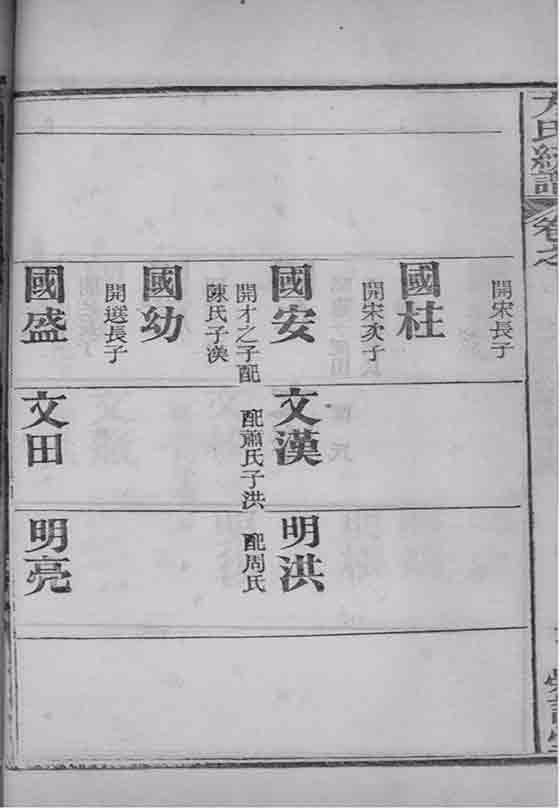 氏統譜
卷之
開宋長子
國柱
開宋次子
國安
開才之子配
陳氏子漢
國幼
開選長子
國盛
文漢
配蕭氏子洪
文田
明洪
配周氏
明亮